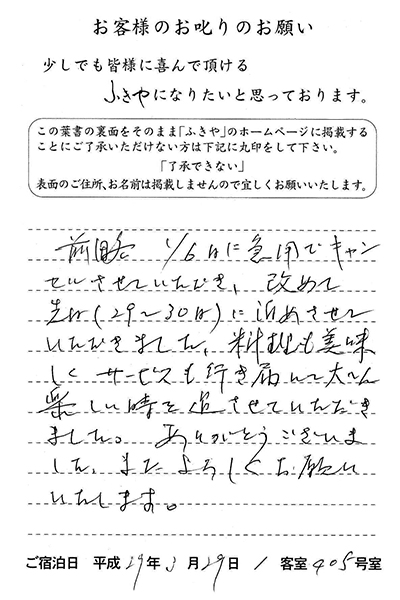 お客様のお叱りのお願い
少しでも皆様に喜んで頂ける
ふきやになりたいと思っております。
この葉書の裏面をそのまま「ふきや」のホームページに掲載する
ことにご了承いただけない方は下記に丸印をして下さい。
「了承できない」
表面のご住所、お名前は掲載しませんので宜しくお願いいたします。
前略 1/6日に急用でキャン
セルさせていただき、改めて
先日(29〜30日)に泊めさせて
いただきました。料理も美味
しくサービスも行き届いて大へん
楽しい時を過させていただき
ました。ありがとうございま
した。またよろしくお願い
いたします。
ご宿泊日 平成29年3月29日 / 客室405号室